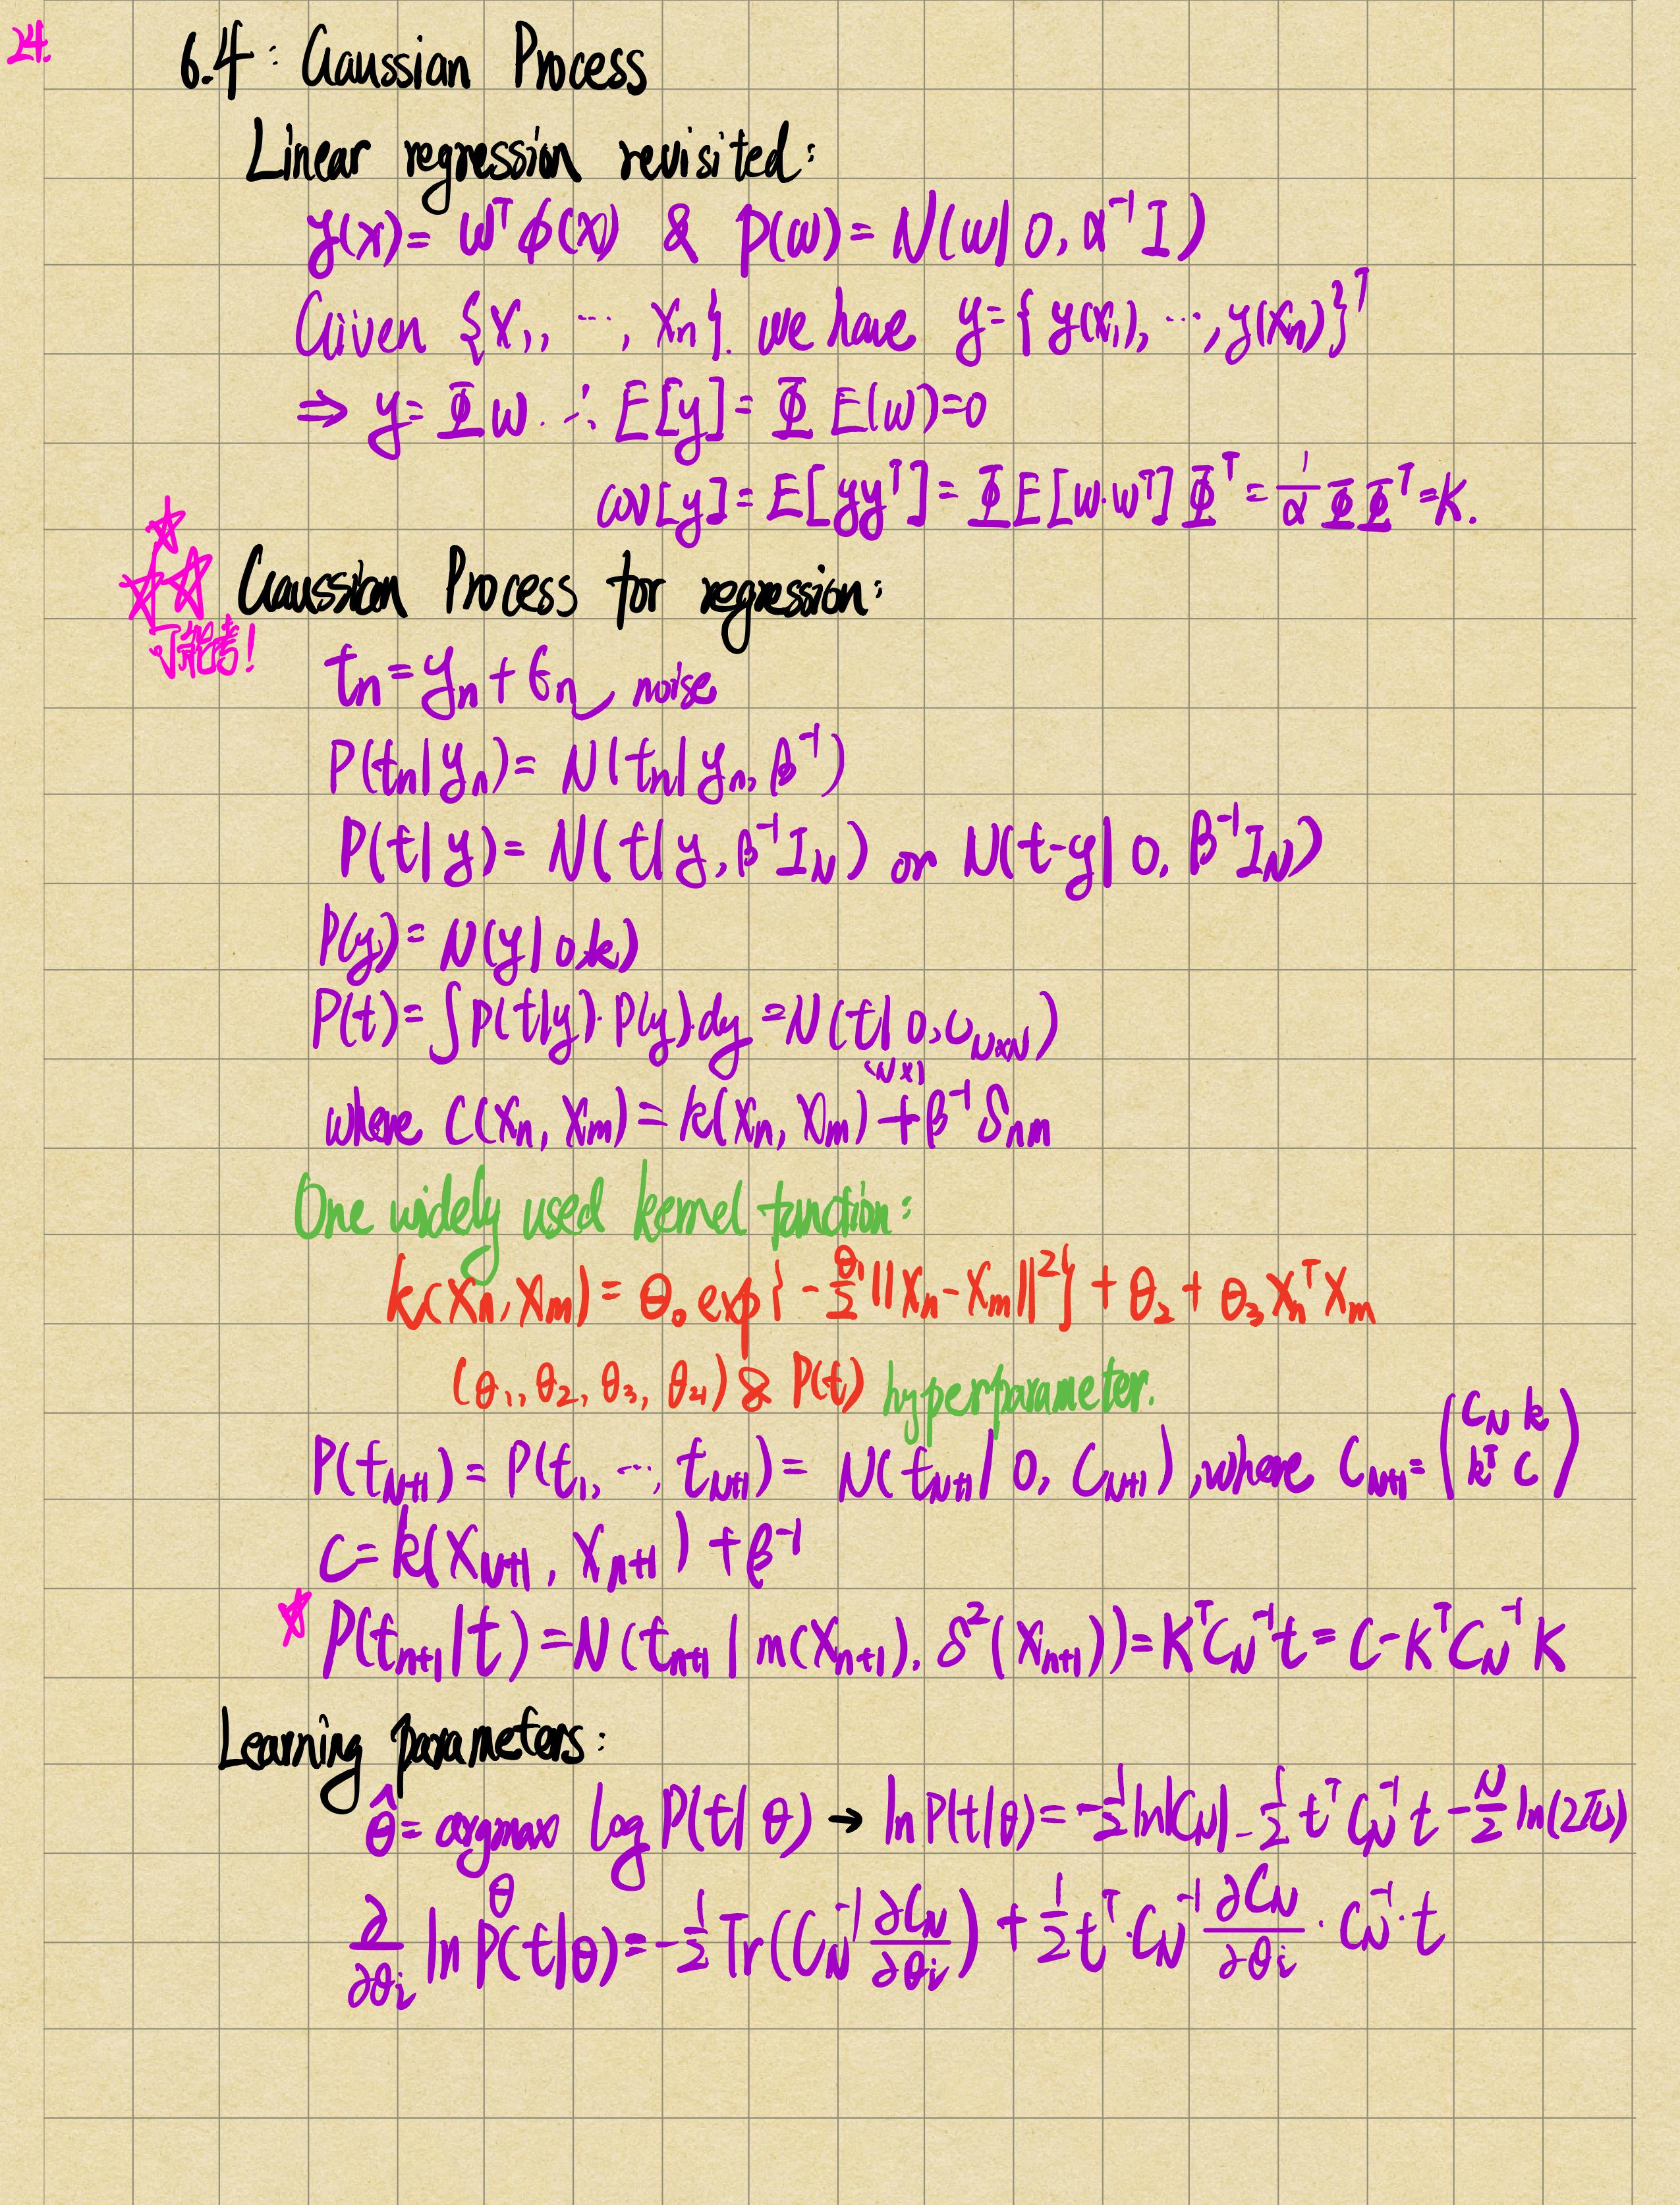 24.
6.4: Gaussian Process
Linear regression revisited:
y(x) = wᵀϕ(x) & p(w) = N(w | 0, α⁻¹I)
Given {x₁, ⋯, xₙ}. we have y = {y(x₁), ⋯, y(xₙ)}ᵀ
⇒ y = Φw. ∴ E[y] = Φ E(w) = 0
cov[y] = E[yyᵀ] = Φ E[w·wᵀ] Φᵀ = 1/α ΦΦᵀ = K.
Gaussian Process for regression:
可能考!
tₙ = yₙ + ϵₙ noise
P(tₙ | yₙ) = N(tₙ | yₙ, β⁻¹)
P(t | y) = N(t | y, β⁻¹I_N) or N(t-y | 0, β⁻¹I_N)
P(y) = N(y | 0, k)
P(t) = ∫ p(t|y)·P(y)·dy = N(t | 0, C_{N×N})
(N×1)
where C(xₙ, xₘ) = k(xₙ, xₘ) + β⁻¹δₙₘ
One widely used kernel function:
k(xₙ, xₘ) = θ₀ exp{-θ₁/2 ||xₙ - xₘ||²} + θ₂ + θ₃xₙᵀxₘ
(θ₁, θ₂, θ₃, θ₄) & P(t) hyperparameter.
P(t_{N+1}) = P(t₁, ⋯, t_{N+1}) = N(t_{N+1} | 0, C_{N+1}), where C_{N+1} = (C_N k
kᵀ c)
C = k(x_{N+1}, x_{n+1}) + β⁻¹
P(t_{n+1} | t) = N(t_{n+1} | m(x_{n+1}), δ²(x_{n+1})) = Kᵀ C_N⁻¹ t = C - Kᵀ C_N⁻¹ K
Learning parameters:
θ̂ = argmax log P(t | θ) → ln P(t | θ) = -1/2 ln|C_N| - 1/2 tᵀ C_N⁻¹ t - N/2 ln(2π)
θ
∂/∂θᵢ ln P(t|θ) = -1/2 Tr(C_N⁻¹ ∂C_N/∂θᵢ) + 1/2 tᵀ·C_N⁻¹ ∂C_N/∂θᵢ · C_N⁻¹·t